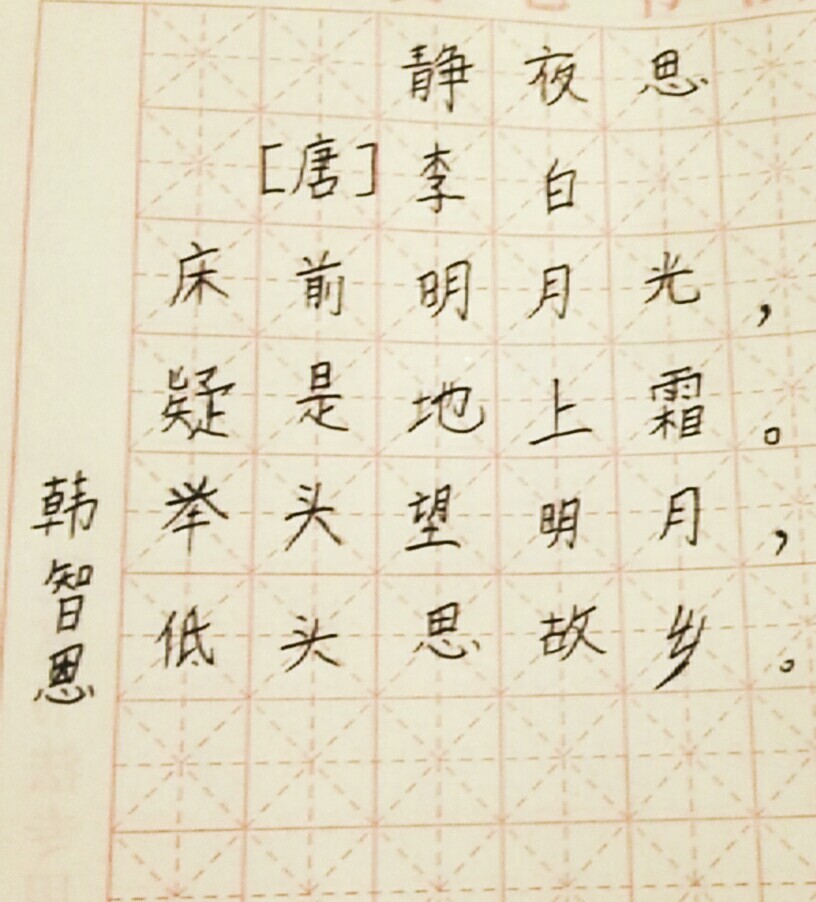 静夜思
[唐]李白
床前明月光，
疑是地上霜。
举头望明月，
低头思故乡。
韩智恩